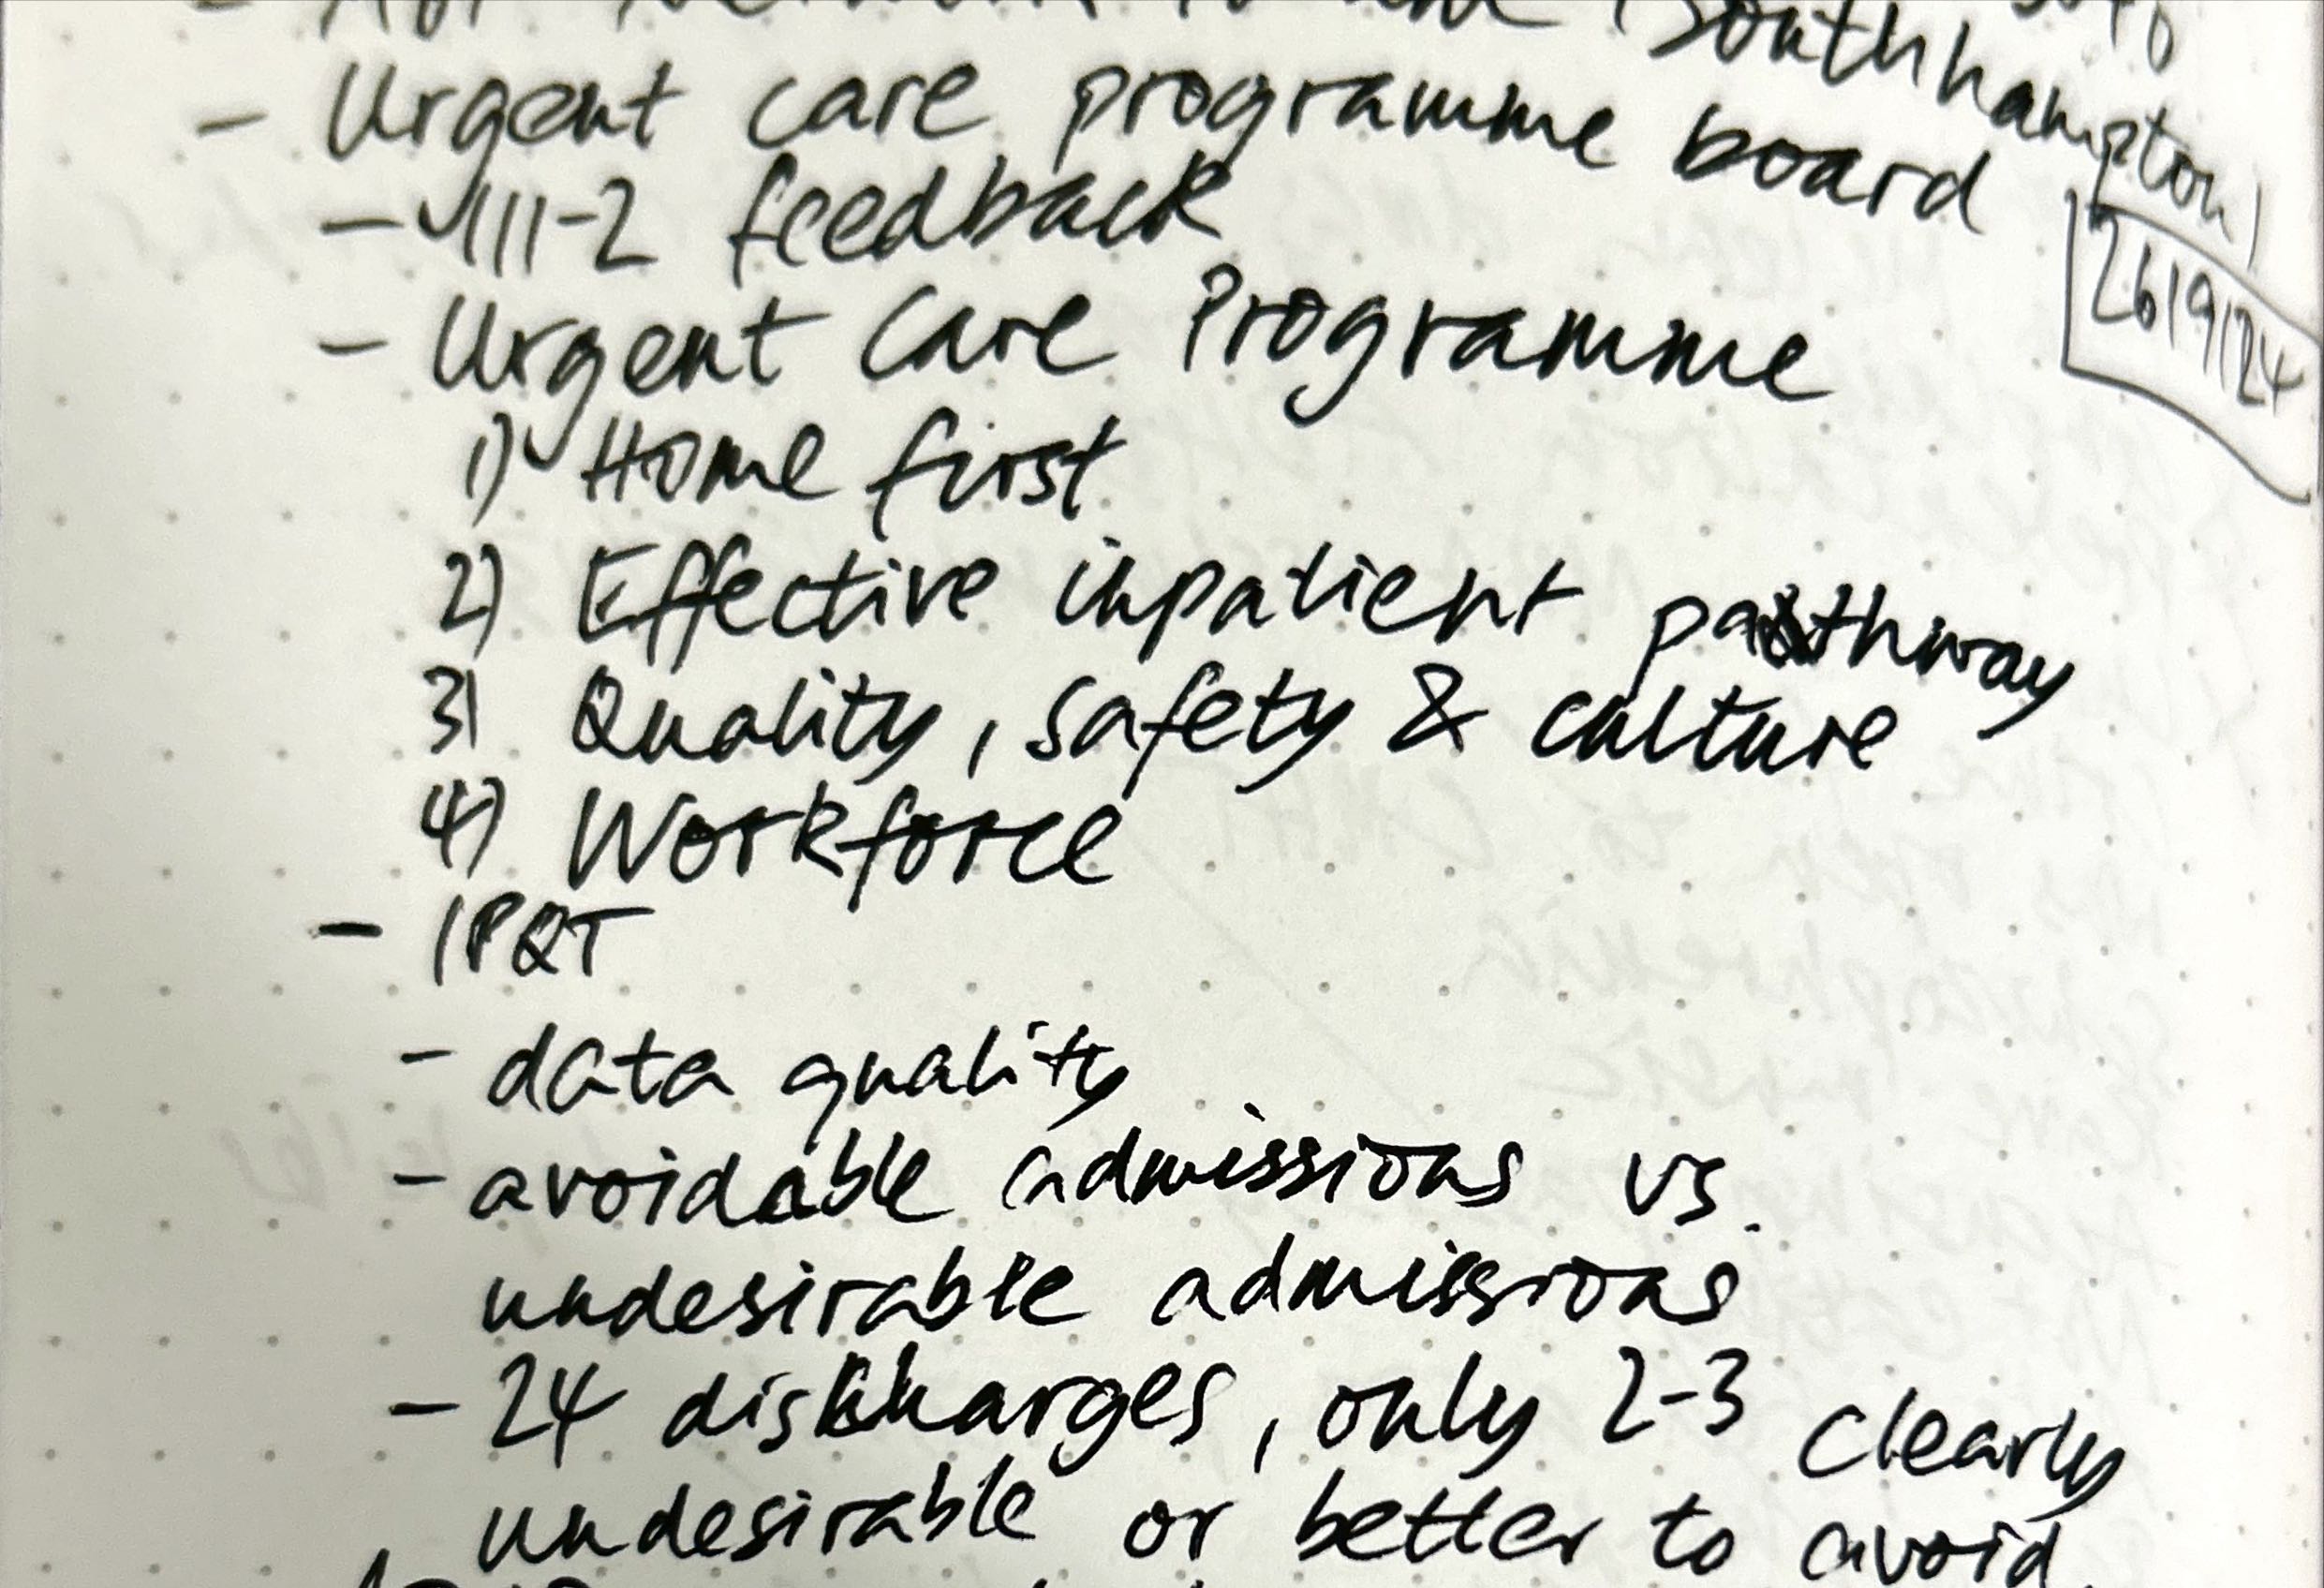 Southhampton)
- Urgent care programme board
26/9/24
- ✓111-2 feedback
- Urgent Care Programme
1)✓ Home first
2) Effective inpatient pathway
3) Quality, safety & culture
4) Workforce
- IPQT
- data quality
- avoidable admissions vs.
undesirable admissions
- 24 discharges, only 2-3 clearly
undesirable or better to avoid.